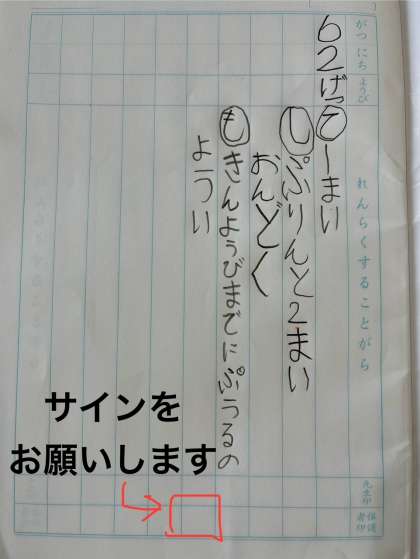 がつ にち ようび
れんらくすることがら
先生印
保護者印
6 2 げつ
て 1まい
し ぷりんと2まい
おんどく
も きんようびまでにぷうるの
ようい
サインを
お願いします